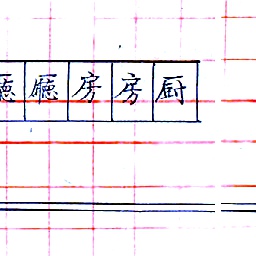 廳廳房房厨